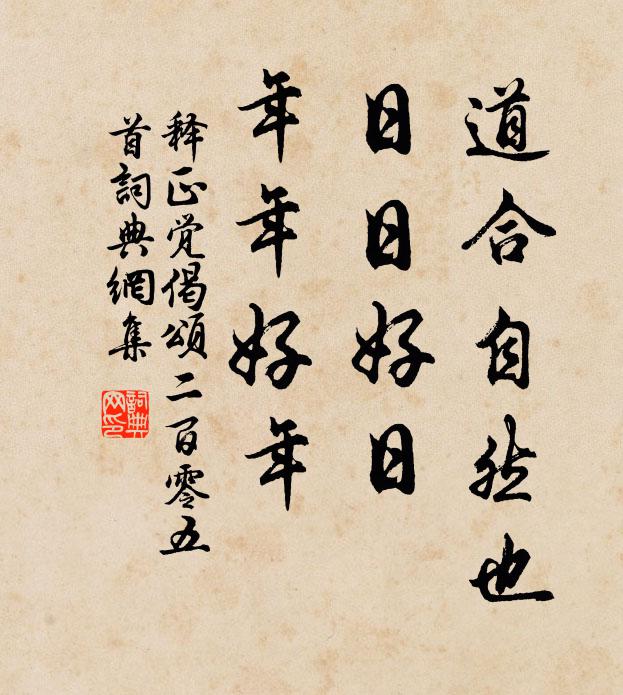 道合自然也
日日好日
年年好年
释正覚偈頌二百零五
首詞典網集
詞典
网印